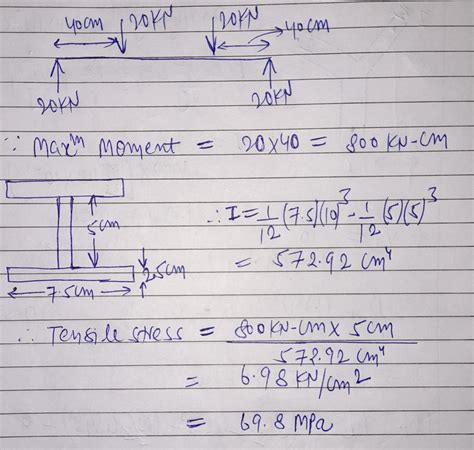 40cm 20KN 20KN 40cm
20KN 20KN
∵ Maxᵐ Moment = 20x40 = 800 KN-cm
5cm
∴ I = 1/12 (7.5)(10)³ - 1/12 (5)(5)³
2.5cm
= 572.92 cm⁴
7.5cm
∴ Tensile stress = 800KN-cm x 5cm / 572.92 cm⁴
= 6.98 KN/cm²
= 69.8 MPa